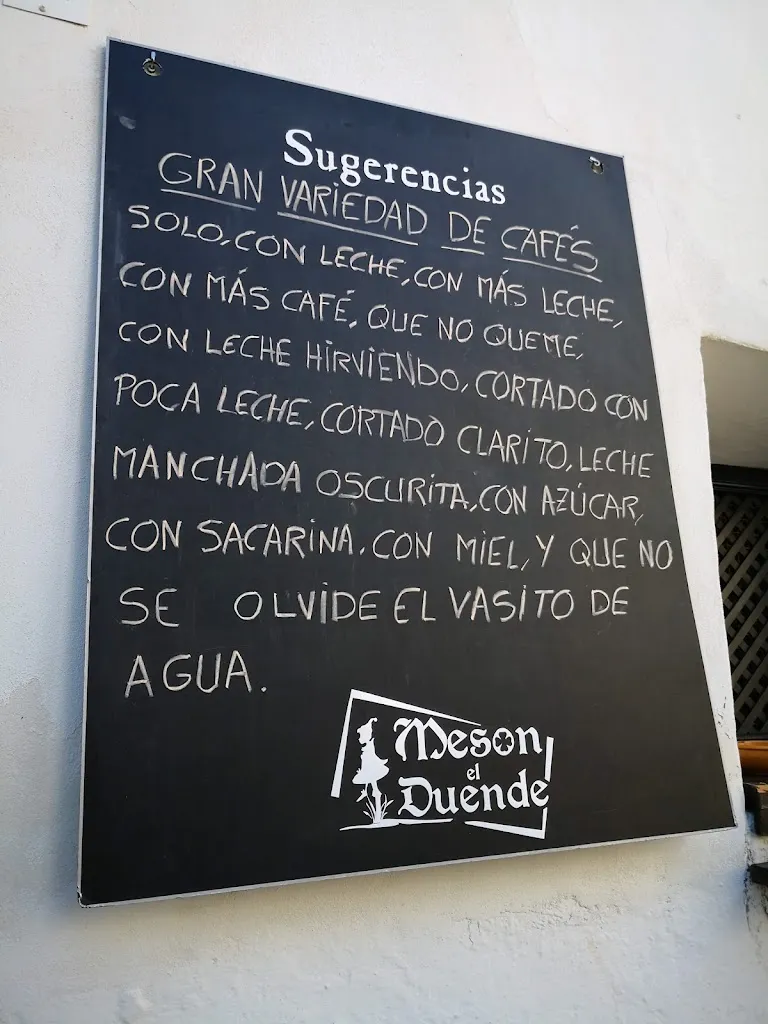 Sugerencias
GRAN VARIEDAD DE CAFÉS
SOLO, CON LECHE, CON MÁS LECHE,
CON MÁS CAFÉ, QUE NO QUEME,
CON LECHE HIRVIENDO, CORTADO CON
POCA LECHE, CORTADO CLARITO, LECHE
MANCHADA OSCURITA, CON AZÚCAR,
CON SACARINA, CON MIEL, Y QUE NO
SE OLVIDE EL VASITO DE
AGUA.
Meson
el
Duende